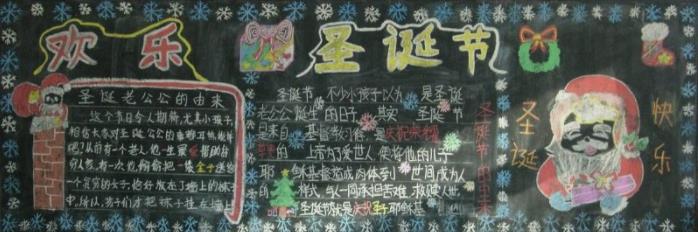 欢乐
圣诞节
圣诞老公公的由来
这个节日令人期待,尤其小孩子,
相信大家对圣诞公公的事蹟耳熟能详
吧?从前有一个老人他一生最爱帮助
穷人家有一次他偷偷把一袋金子送给
一个贫穷的女子,恰好放在了墙上的袜子
中,所以,孩子们才把袜子挂在墙上
圣诞节 不少小孩子以为 是圣诞
老公公诞生的日子 其实 圣诞节
是来自 基督教
上帝为了爱世人 使将他的儿子
耶稣基督造成肉体 到世间成为人
样式 与人同承担苦难 救赎人世
圣诞节就是庆祝圣子耶稣基
圣诞节的由来
圣诞
快乐